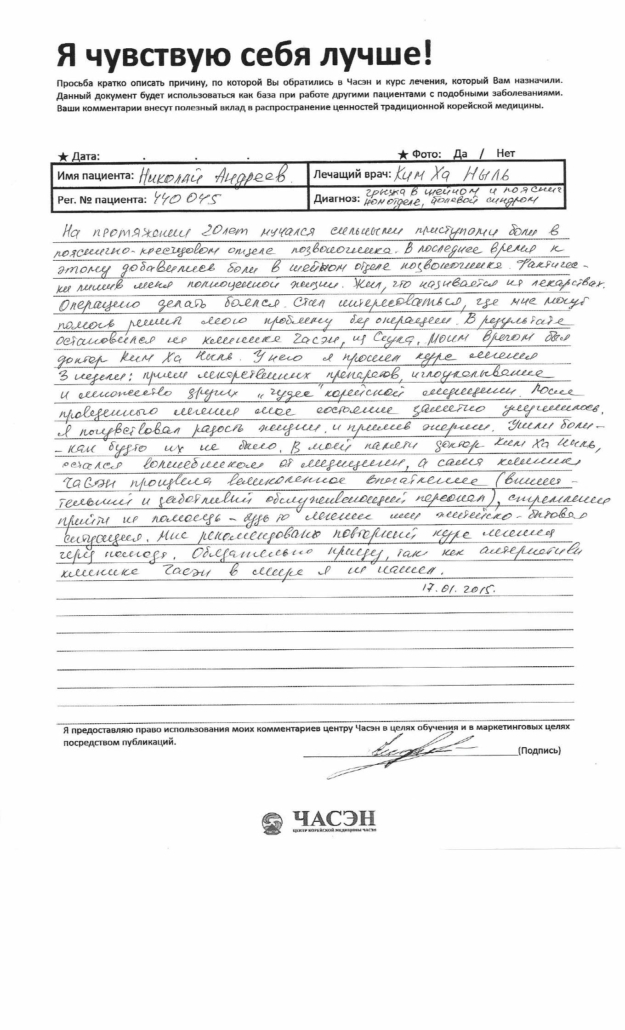 Я чувствую себя лучше!
Просьба кратко описать причину, по которой Вы обратились в Часэн и курс лечения, который Вам назначили.
Данный документ будет использоваться как база при работе другими пациентами с подобными заболеваниями.
Ваши комментарии внесут полезный вклад в распространение ценностей традиционной корейской медицины.
★ Дата: . . .
★ Фото: Да / Нет
Имя пациента: Николай Андреев.
Лечащий врач: Ким Ха Ныль
Рег. № пациента: 440 045
Диагноз: грыжа в шейном и пояснич
ном отделе, болевой синдром
На протяжении 20 лет мучался сильными приступами боли в
пояснично-крестцовом отделе позвоночника. В последнее время к
этому добавились боли в шейном отделе позвоночника. Фактичес-
ки лишив меня полноценной жизни. Жил, что называется на лекарствах.
Операцию делать боялся. Стал интересоваться, где мне могут
помочь решить мою проблему без операции. В результате
остановился на клинике Часэн, из Сеула. Моим врачом был
доктор Ким Ха Ныль. У него я прошел курс лечения
3 недели: прием лекарственных препаратов, иглоукалывание
и множество других "чудес" корейской медицины. После
проведенного лечения мое состояние заметно улучшилось.
Я почувствовал радость жизни и прилив энергии. Ушли боли -
- как будто их не было. В моей памяти доктор Ким Ха Ныль,
остался волшебником от медицины, а сама клиника
Часэн произвела великолепное впечатление (внима -
тельный и заботливый обслуживающий персонал), стремление
прийти на помощь - будь то лечение или житейско-бытовая
ситуация. Мне рекомендовано повторный курс лечения
через полгода. Обязательно приеду, так как альтернативы
клинике Часэн в мире я не нашел.
17.01.2015.
Я предоставляю право использования моих комментариев центру Часэн в целях обучения и в маркетинговых целях
посредством публикаций.
(Подпись)
ЧАСЭН
ЦЕНТР КОРЕЙСКОЙ МЕДИЦИНЫ ЧАСЭН